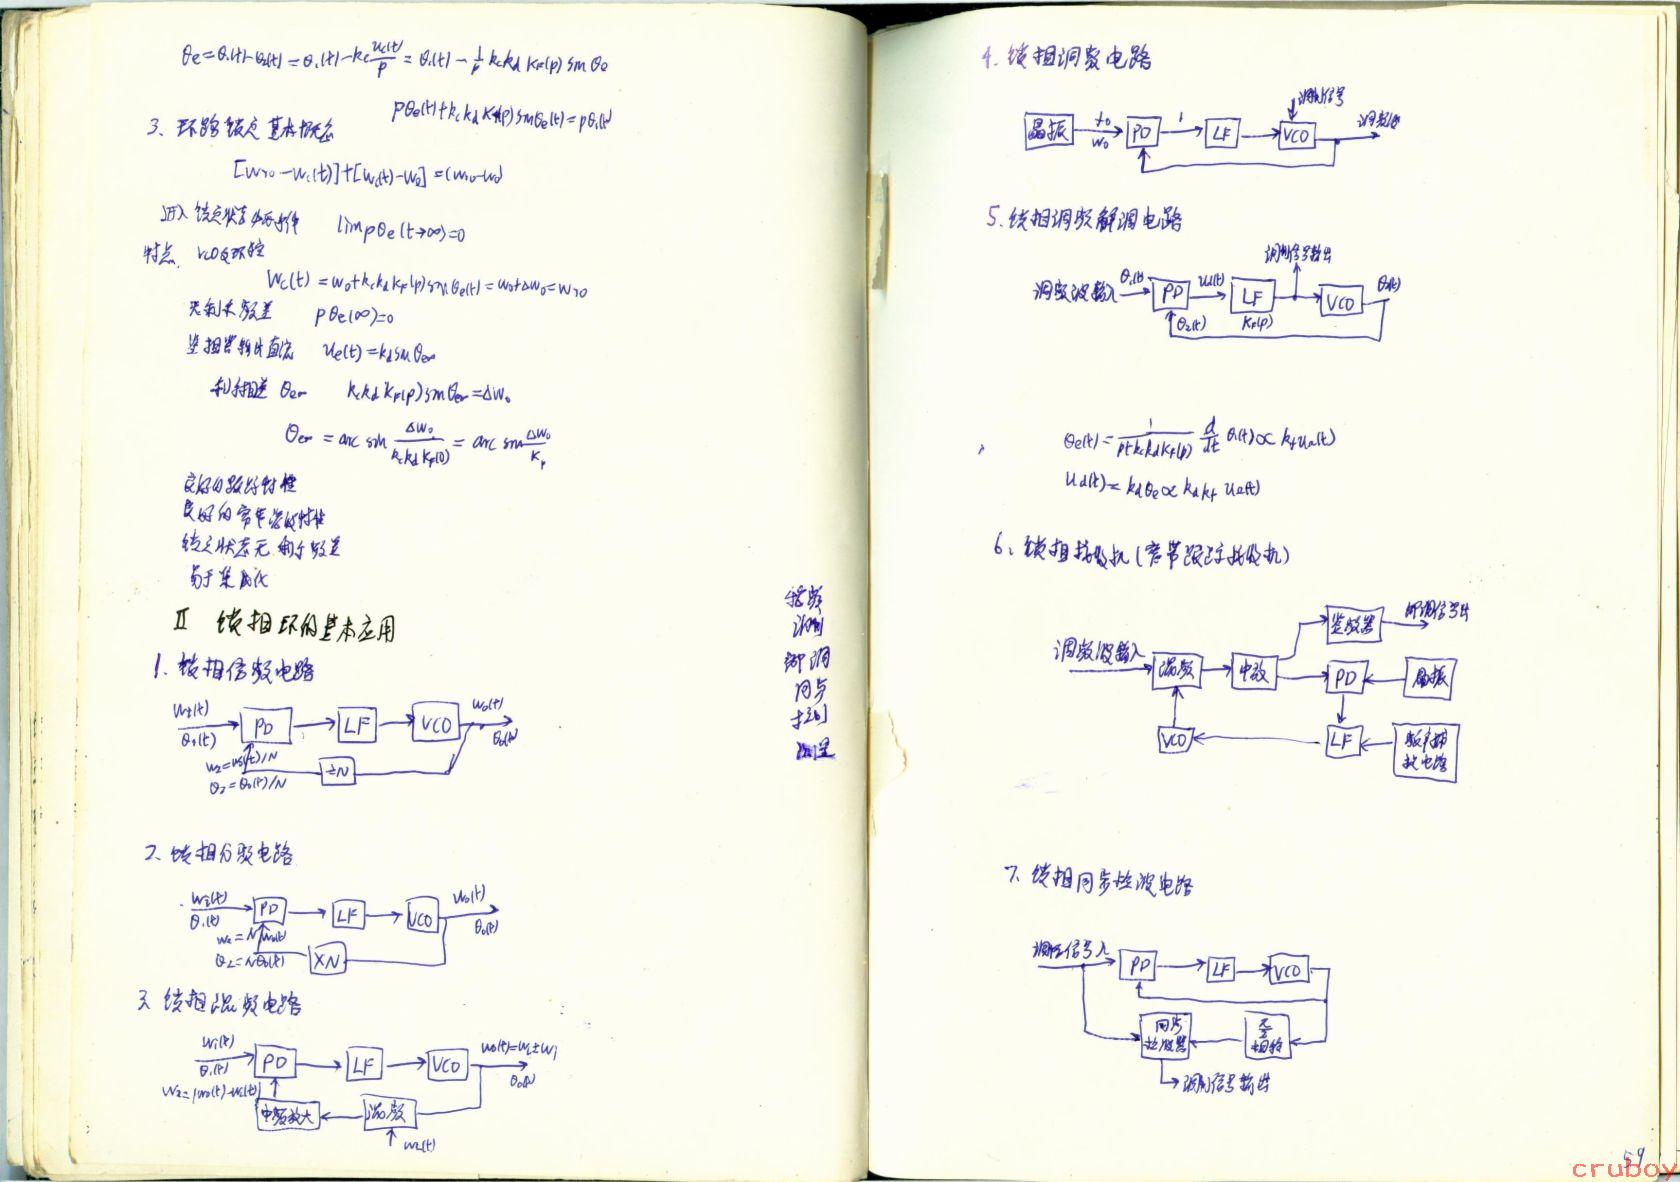 θe=θ1(t)-θ2(t)=θ1(t)-kc uc(t)/p = θ1(t) - 1/p kckd KF(p) sinθe
pθe(t)+kckd KF(p) sinθe(t)=pθ1(t)
3. 环路锁定基本概念
[ωr0-ωc(t)]+[ωc(t)-ω0]=(ωr0-ω0)
进入锁定状态的条件 limpθe(t→∞)=0
特点. VCO受环控
ωc(t)=ω0+kckdKF(p)sinθe(t)=ω0+Δω0=ωr0
无剩余频差 pθe(∞)=0
鉴相器输出直流 ue(t)=kdsinθe∞
剩余相差 θe∞ kckdKF(p)sinθe∞=Δω0
θe∞=arc sin Δω0/kckdKF(0) = arc sin Δω0/Kp
良好的跟踪特性
良好的窄带滤波特性
锁定状态无剩余频差
易于集成化
Ⅱ 锁相环的基本应用
1. 锁相倍频电路
ωi(t)
θ1(t)
PD
LF
VCO
ω0(t)
θ0(t)
ω2=ω0(t)/N
θ2=θ0(t)/N
÷N
2、锁相分频电路
ωi(t)
θ1(t)
PD
LF
VCO
ω0(t)
θ0(t)
ω2=Nω0(t)
θ2=Nθ0(t)
×N
3. 锁相混频电路
ωi(t)
θ1(t)
PD
LF
VCO
ω0(t)=ωL±ωi
θ0(t)
ω2=|ω0(t)-ωL(t)|
中频放大
混频
ωL(t)
调制
解调
同步
控制
测量
4. 锁相调频电路
晶振
f0
ω0
PD
LF
VCO
调制信号
调频波
5. 锁相调频解调电路
调制信号输出
调频波输入
θ1(t)
PD
ud(t)
LF
VCO
θ2(t)
θ2(t)
KF(p)
θe(t)= 1/p+kckdKF(p) d/dt θ1(t)∝kfuΩ(t)
ud(t)=kdθe∝kdkf uΩ(t)
6、锁相接收机(窄带跟踪接收机)
调频波输入
混频
中放
鉴频器
解调信号出
PD
晶振
VCO
LF
频率捕
捉电路
7. 锁相同步检波电路
调幅信号入
PD
LF
VCO
同步
检波器
π/2
相移
调制信号输出
59
cruboy